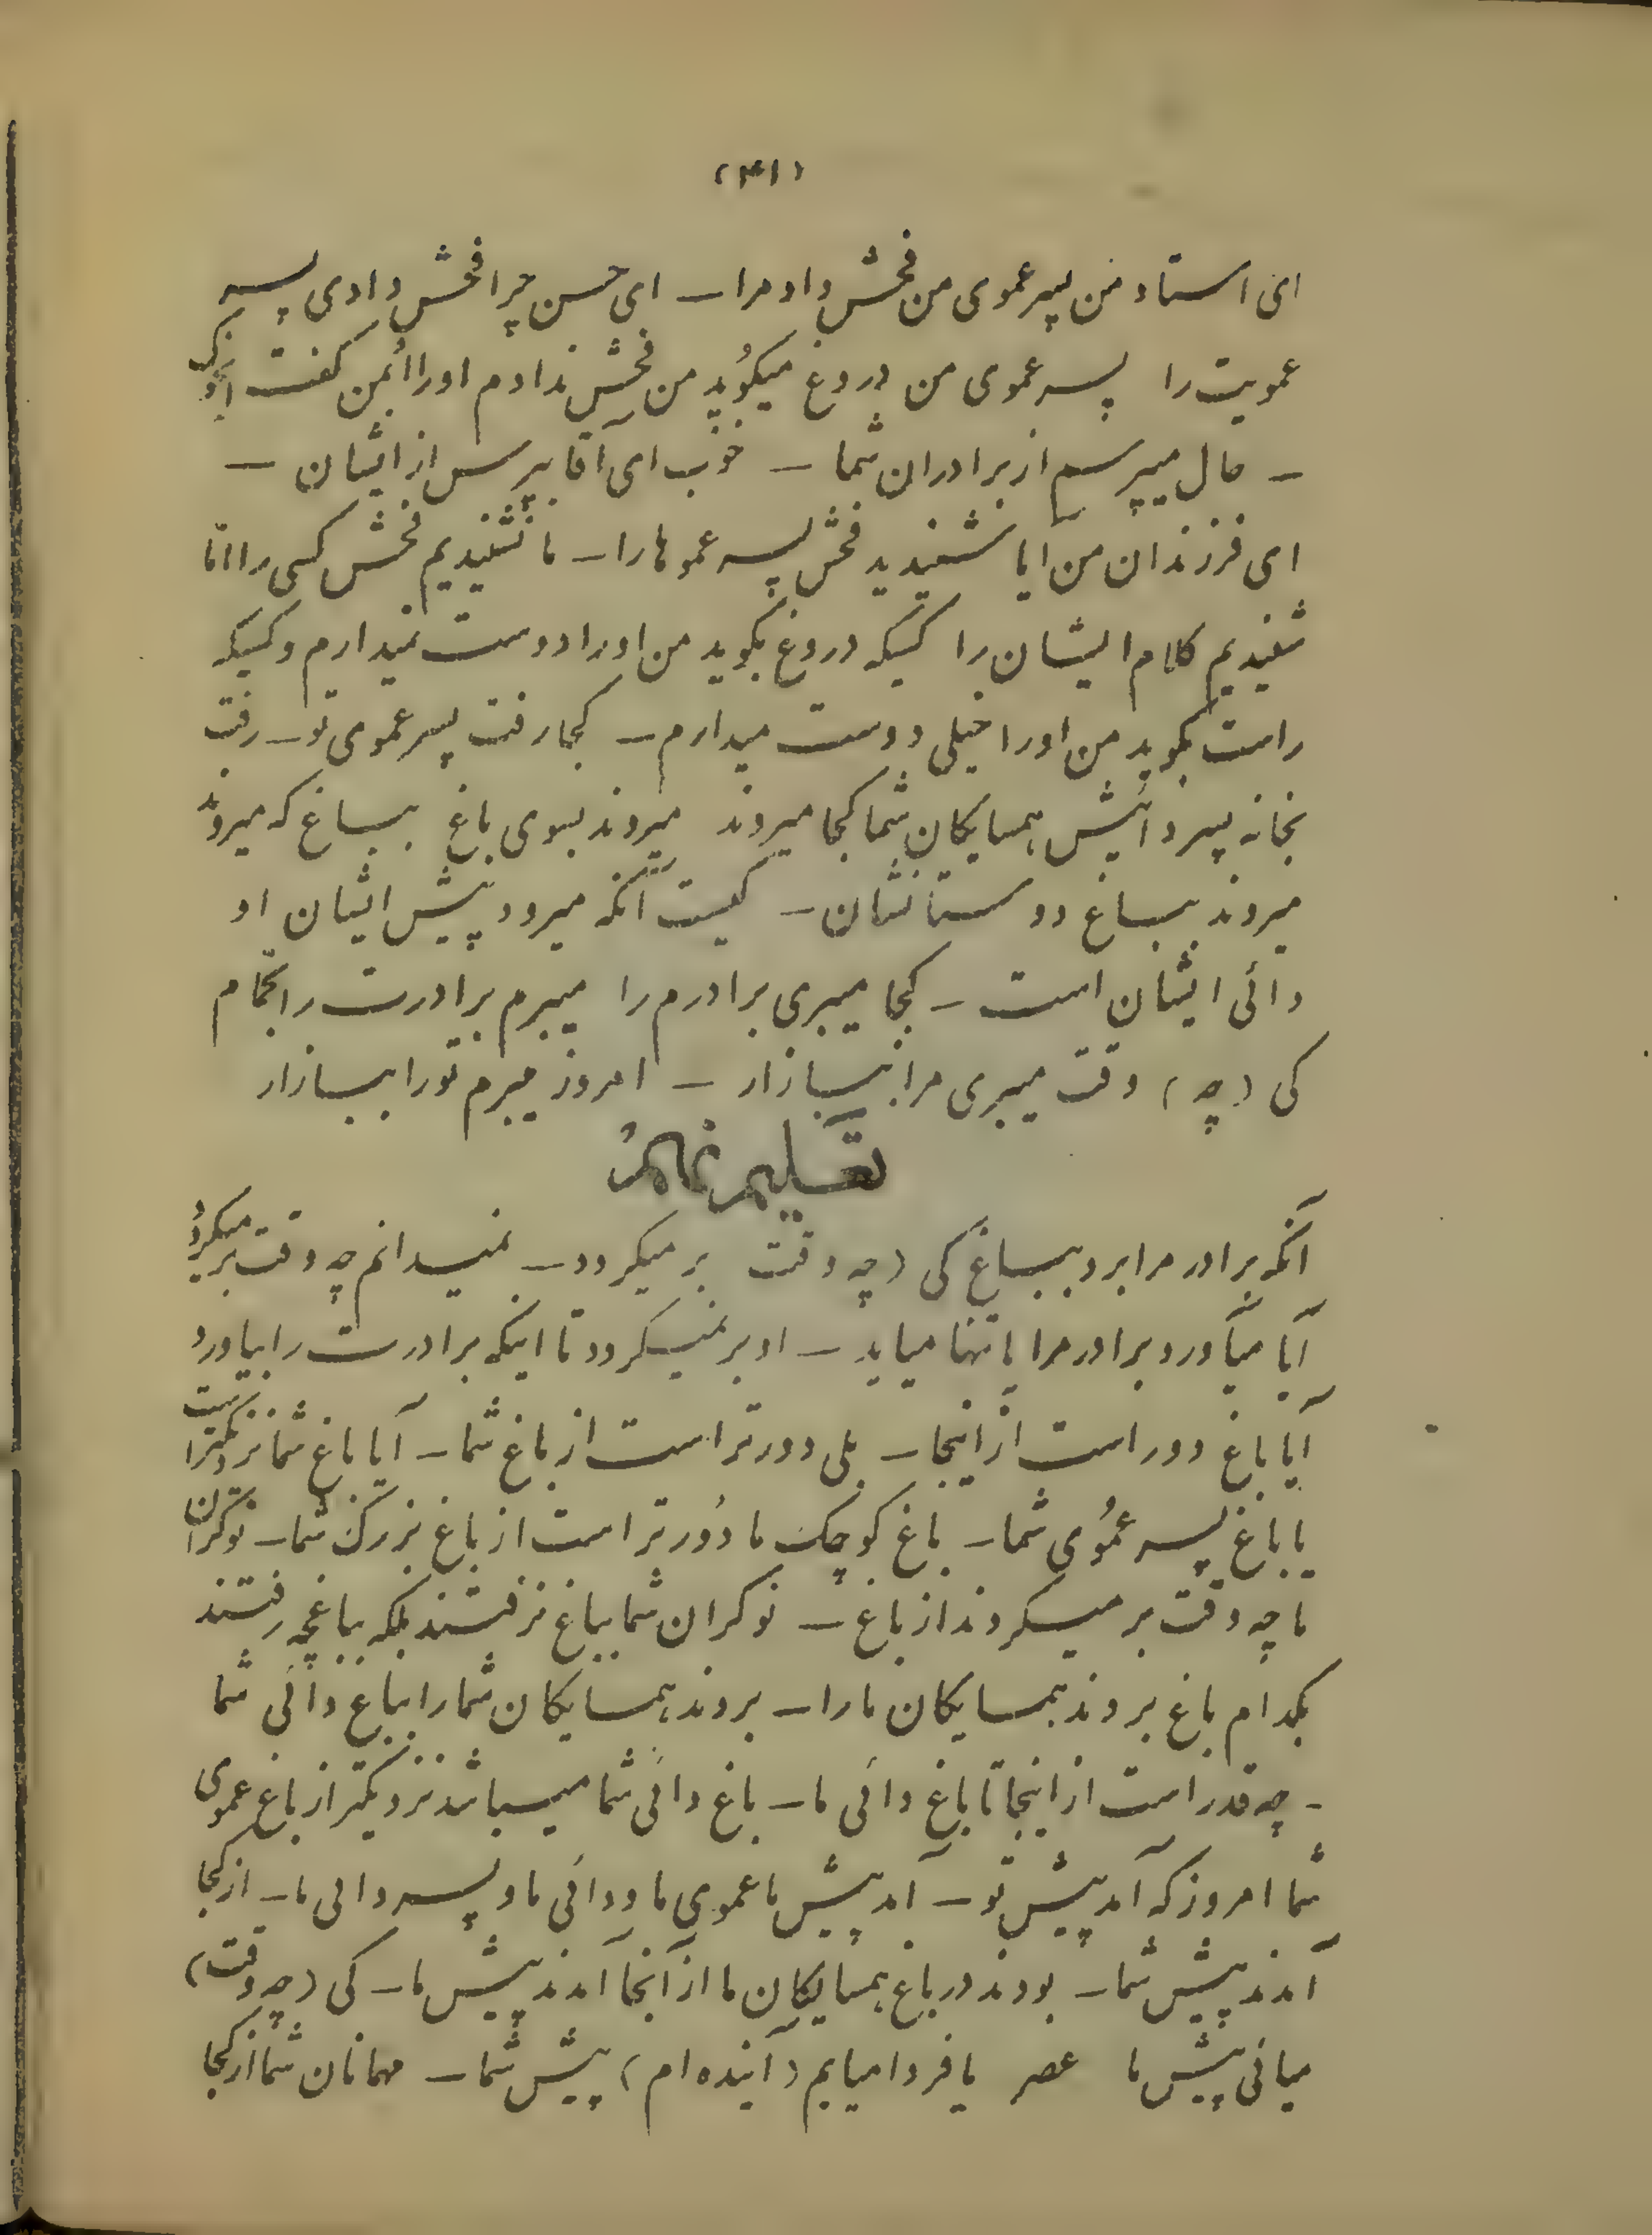 (۴۱)
ای استاد من پسر عموی من فحش داد مرا ــ ای حسن چرا فحش دادی پسر
عمویت را پسر عموی من دروغ میگوید من فحش ندادم او را او بمن گفت
ــ حال میپرسم از برادران شما ــ خوب ای آقا بپرس از ایشان ــ
ای فرزندان من آیا شنیدید فحش پسر عموها را ــ ما نشنیدیم فحش کسی را اما
شنیدیم کلام ایشان را کسیکه دروغ بگوید من او را دوست نمیدارم و کسیکه
راست بگوید من او را خیلی دوست میدارم ــ کجا رفت پسر عموی تو ــ رفت
بخانه پسر دائیش همسایکان شما کجا میروند میروند بسوی باغ بباغ که میروند
میروند بباغ دوستانشان ــ کیست آنکه میرود پیش ایشان او
دائی ایشان است ــ کجا میبری برادرم را میبرم برادرت را بحمام
کی (چه) وقت میبری مرا ببازار ــ امروز میبرم تو را ببازار
تعلیم نهم
آنکه برادر مرا برد بباغ کی (چه وقت بر میکردد ــ نمیدانم چه وقت بر میکردد
آیا میآورد برادر مرا یا تنها میاید ــ او بر نمیکردد تا اینکه برادرت را بیاورد
آیا باغ دور است از اینجا ــ بلی دورتر است از باغ شما ــ آیا باغ شما نزدیکتر است
یا باغ پسر عموی شما ــ باغ کوچک ما دورتر است از باغ بزرک شما ــ نوکران
ما چه وقت بر میکردند از باغ ــ نوکران شما بباغ نرفتند بلکه بباغچه رفتند
بکدام باغ بردند همسایکان ما را ــ بردند همسایکان شما را بباغ دائی شما
ــ چه قدر است از اینجا تا باغ دائی ما ــ باغ دائی شما میباشد نزدیکتر از باغ عموی
شما امروز که آمد پیش تو ــ آمد پیش ما عموی ما و دائی ما و پسر دائی ما ــ از کجا
آمدند پیش شما ــ بودند در باغ همسایکان ما از آنجا آمدند پیش ما ــ کی (چه وقت)
میائی پیش ما عصر یا فردا میایم (آینده ام) پیش شما ــ مهمانان شما از کجا